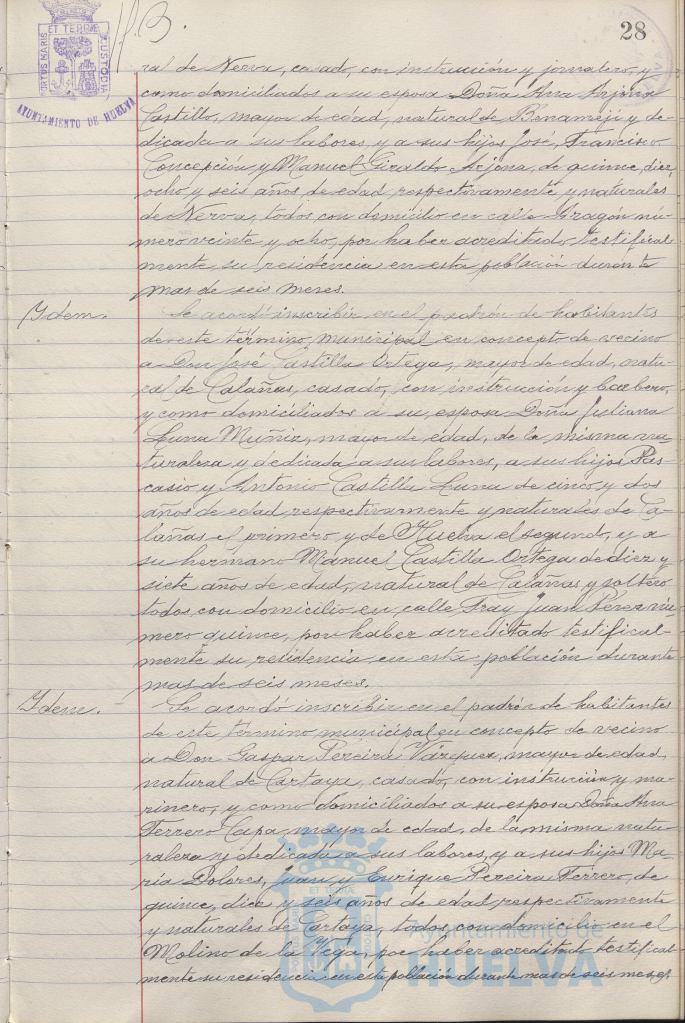 28
PORTUS MARIS ET TERRÆ CUSTODIA
AYUNTAMIENTO DE HUELVA
ral de Nerva, casado, con instrucción y jornalero, y
como domiciliados a su esposa Doña Ana Arjona
Castillo, mayor de edad, natural de Benamejí y de-
dicada a sus labores, y a sus hijos José, Francisco,
Concepción y Manuel Giraldo Arjona, de quince, diez,
ocho y seis años de edad, respectivamente, y naturales
de Nerva, todos con domicilio en calle Aragón nú-
mero veinte y ocho, por haber acreditado testifical-
mente su residencia en esta población durante
mas de seis meses.
Ydem. Se acordó inscribir en el padrón de habitantes
de este término municipal en concepto de vecino
a Don José Castilla Ortega, mayor de edad, natu-
ral de Calañas, casado, con instrucción y barbero,
y como domiciliados a su esposa Doña Juliana
Luna Muñiz, mayor de edad, de la misma na-
turaleza y dedicada a sus labores, a sus hijos Pas-
casio y Antonio Castilla Luna de cinco y dos
años de edad respectivamente y naturales de Ca-
lañas el primero y de Huelva el segundo, y a
su hermano Manuel Castilla Ortega de diez y
siete años de edad, natural de Calañas y soltero
todos con domicilio en calle Fray Juan Pérez nú-
mero quince, por haber acreditado testifical-
mente su residencia en esta población durante
mas de seis meses.
Ydem. Se acordó inscribir en el padrón de habitantes
de este término municipal en concepto de vecino
a Don Gaspar Pereira Vázquez, mayor de edad,
natural de Cartaya, casado, con instrucción y ma-
rinero, y como domiciliados a su esposa Doña Ana
Ferrero Capa, mayor de edad, de la misma natu-
raleza y dedicada a sus labores, y a sus hijos Ma-
ría Dolores, Juan y Enrique Pereira Ferrero, de
quince, diez y seis años de edad respectivamente
y naturales de Cartaya, todos con domicilio en el
Molino de la Vega, por haber acreditado testifical-
mente su residencia en esta población durante mas de seis meses.
Ayuntamiento de
HUELVA